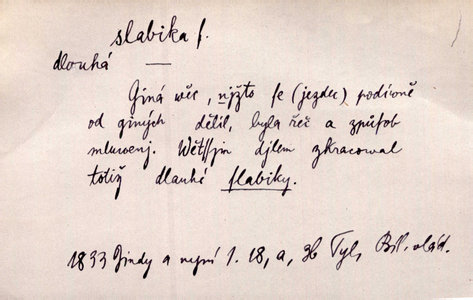 slabika f.
dlouhá —
Giná wěc, njžto se (jezdec) podiwně
od giných dělil, byla řeč a způsob
mluwenj. Wětssjm djlem zkracowal
totiž dlouhé slabiky.
1833 Jindy a nyní 1. 18, a, 36 Tyl,